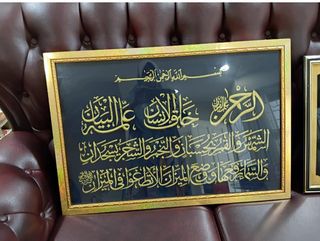 بسم الله الرحمن الرحيم
الرحمن خلق الإنسان علمه البيان
الشمس والقمر بحسبان والنجم والشجر يسجدان
والسماء رفعها ووضع الميزان ألا تطغوا في الميزان